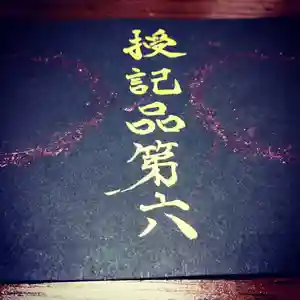 授記品第六